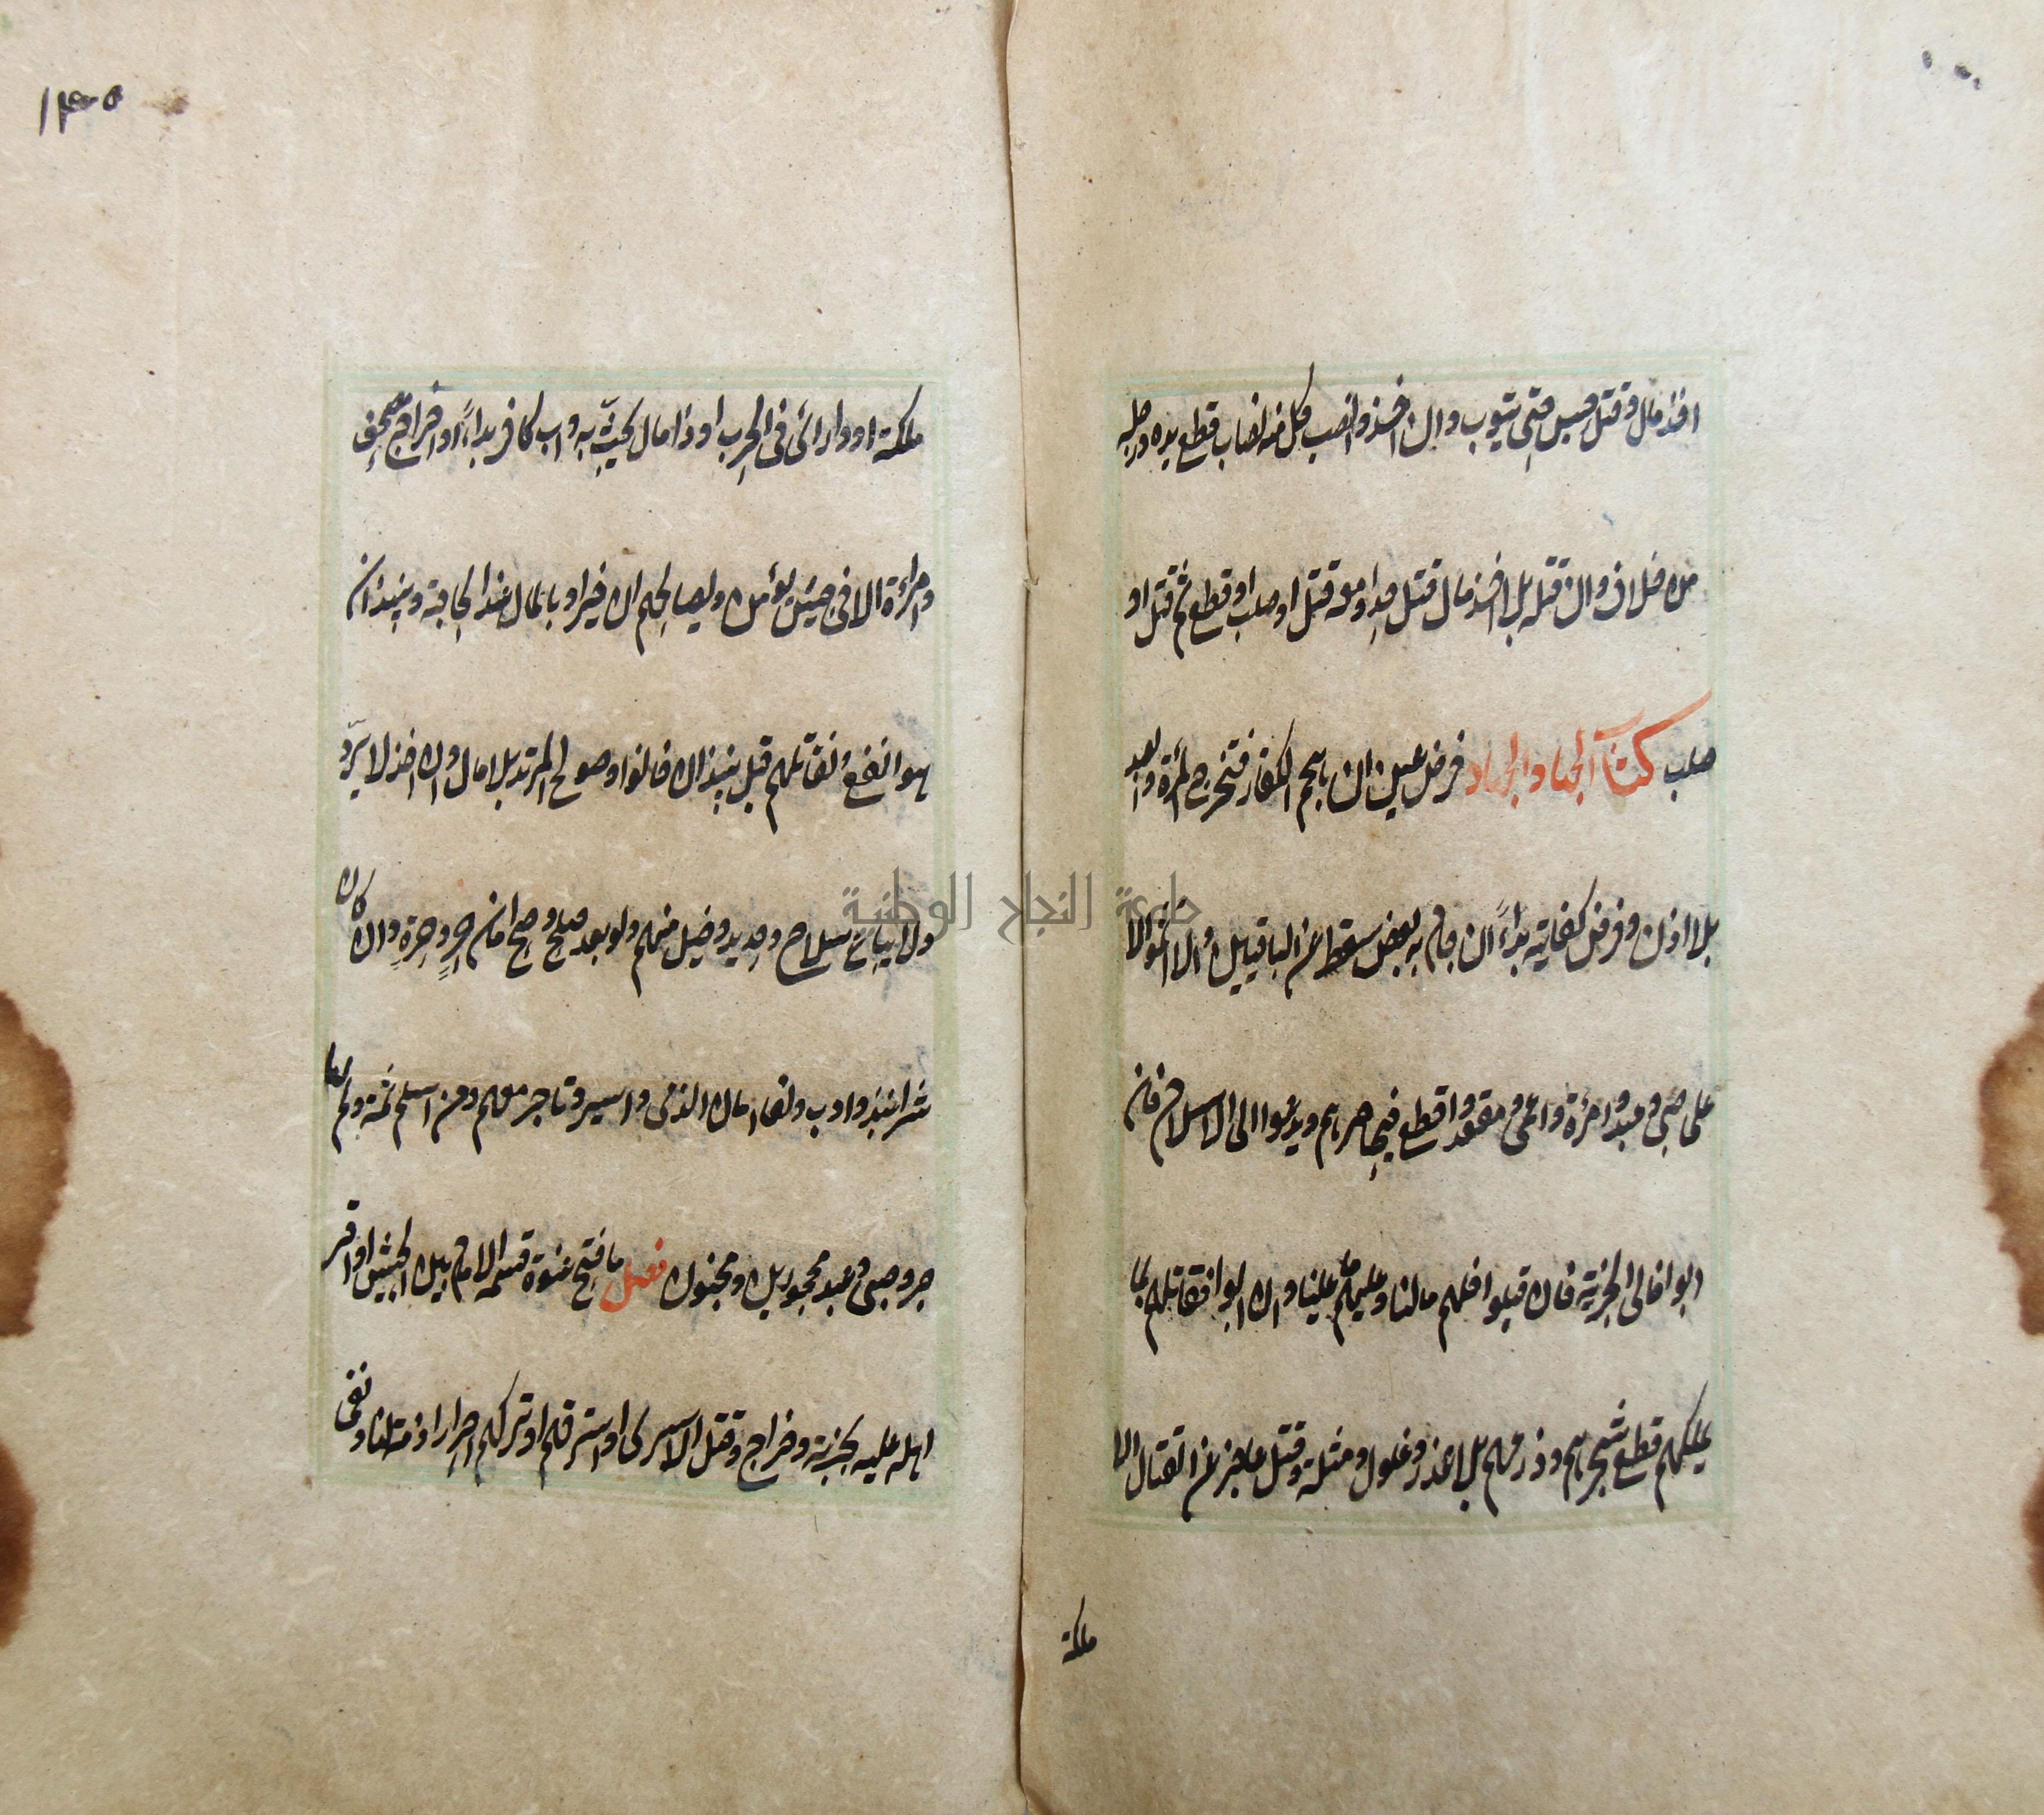 اخذ مال وقتل حبس حتى يتوب وان اخذ وانصب كل منه نصاب قطع يده ورجله
من خلاف وان قتل بلا اخذ مال قتل حدا ومعه قتل او صلب او قطع ثم قتل او
صلب كتاب الجهاد فرض عين ان هجم الكفار فتخرج المرأة والعبد
بلا اذن وفرض كفاية بداءً ان قام به بعض سقط عن الباقين والا اثموا لا
على صبي وعبد وامرأة واعمى ومقعد واقطع فيحاصرهم ويدعوا الى الاسلام فان
ابوا فالى الجزية فان قبلوا فلهم مالنا وعليهم ما علينا وان ابوا فنقاتلهم بما
يهلكهم قطع شجرهم وزرعهم بلا غدر وغلول ومثلة وقتل عاجز عن القتال الا
ملكة
١٤٠٥
ملكة او ذا رائ في الحرب او ذا مال يحث به واب كافر بداءً او اخراج مصحف
وامرأة الا في جيش يؤمن ويصالحهم ان خيرا وبالمال عند الحاجة وينبذ ان
هو انفع ونقاتلهم قبل نبذ ان خانوا وصولح المرتد بلا مال وان اخذ لا يرد
ولا يباع سلاح وحديد وخيل منهم ولو بعد صلح وصح امان حر وحرة وان كان
شرا نبذ وادب ولغا امان الذمي واسير وتاجر معهم ومن اسلم ثمة ولم يها
جر وصبي وعبد محجورين ومجنون فصل ما فتح عنوة قسمه الامام بين الجيش او اقر
اهله عليه بجزية وخراج وقتل الاسرى او استرقهم او تركهم احرارا ذمة لنا ونفى
جامعة النجاح الوطنية